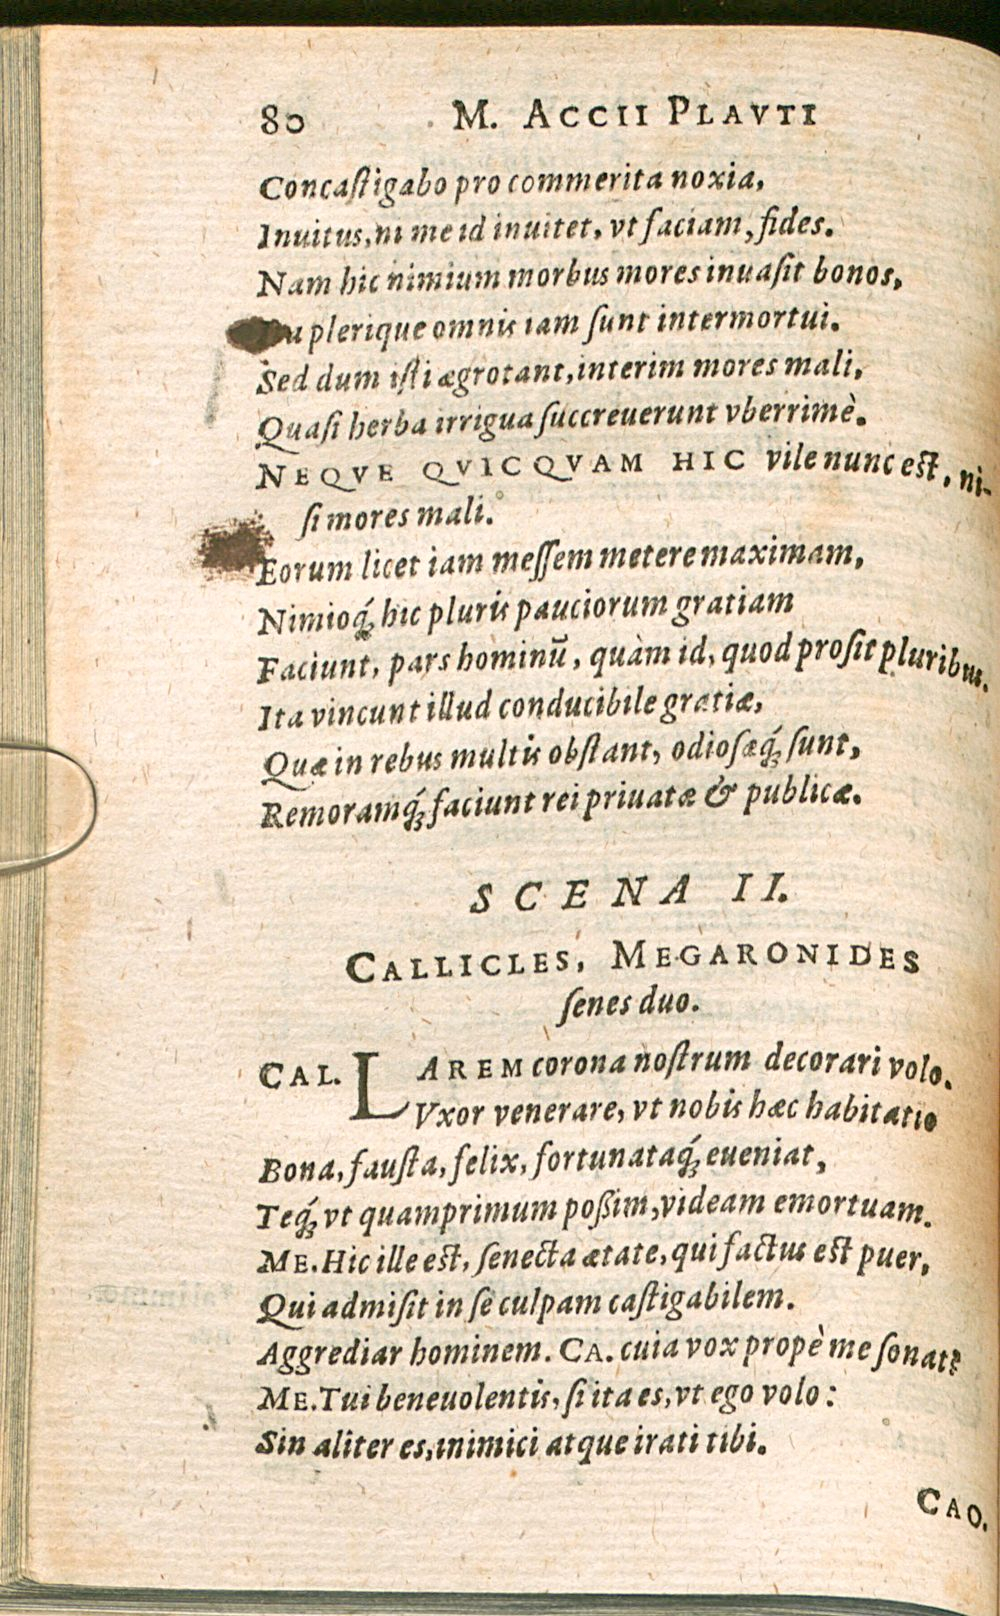 80 M. ACCII PLAVTI
Concaſtigabo pro commerita noxia,
Inuitus, ni me id inuitet, vt faciam, fides.
Nam hic nimium morbus mores inuaſit bonos,
plerique omnis iam ſunt intermortui.
Sed dum iſti ægrotant, interim mores mali,
Quaſi herba irrigua ſuccreuerunt vberrimè.
NEQVE QVICQVAM HIC vile nunc eſt, ni-
ſi mores mali.
Eorum licet iam meſſem metere maximam,
Nimioq́; hic pluris pauciorum gratiam
Faciunt, pars hominū, quàm id, quod proſit pluribus.
Ita vincunt illud conducibile gratiæ,
Quæ in rebus multis obſtant, odioſæq́; ſunt,
Remoramq́; faciunt rei priuatæ & publicæ.
SCENA II.
CALLICLES, MEGARONIDES
ſenes duo.
CAL. LAREM corona noſtrum decorari volo.
Vxor venerare, vt nobis hæc habitatio
Bona, fauſta, felix, fortunataq́; eueniat,
Teq́; vt quamprimum poßim, videam emortuam.
ME. Hic ille eſt, ſenecta ætate, qui factus eſt puer,
Qui admiſit in ſe culpam caſtigabilem.
Aggrediar hominem. CA. cuia vox propè me ſonat?
ME. Tui beneuolentis, ſi ita es, vt ego volo:
Sin aliter es, inimici atque irati tibi.
CAO.